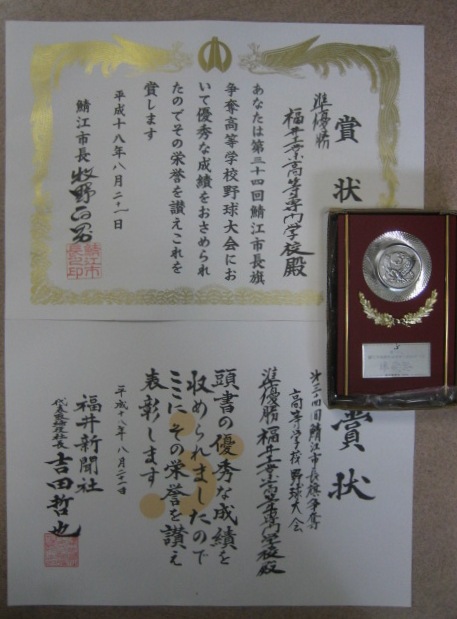 賞状
準優勝
福井工業高等専門学校殿
あなたは第三十四回鯖江市長旗
争奪高等学校野球大会にお
いて優秀な成績をおさめられ
たのでその栄誉を讃えこれを
賞します
平成十八年八月二十一日
鯖江市長 牧野百男
鯖江市長之印
賞状
第三十四回鯖江市長旗争奪
高等学校野球大会
準優勝 福井工業高等専門学校殿
頭書の優秀な成績を
収められましたので
ここにその栄誉を讃え
表彰します
平成十八年八月二十一日
福井新聞社
代表取締役社長 吉田哲也
準優勝